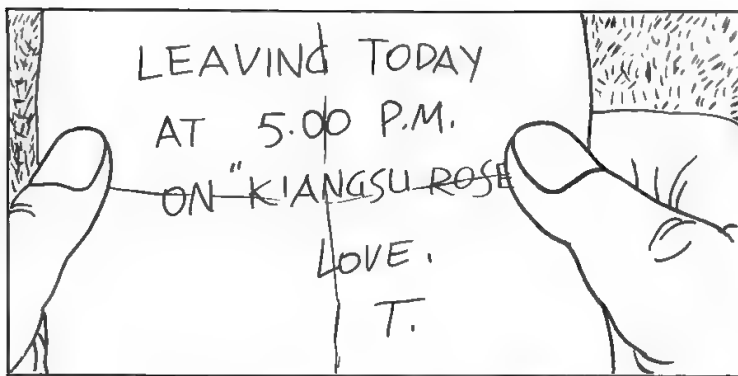 LEAVING TODAY
AT 5.00 P.M.
ON "KIANGSU ROSE
LOVE.
T.